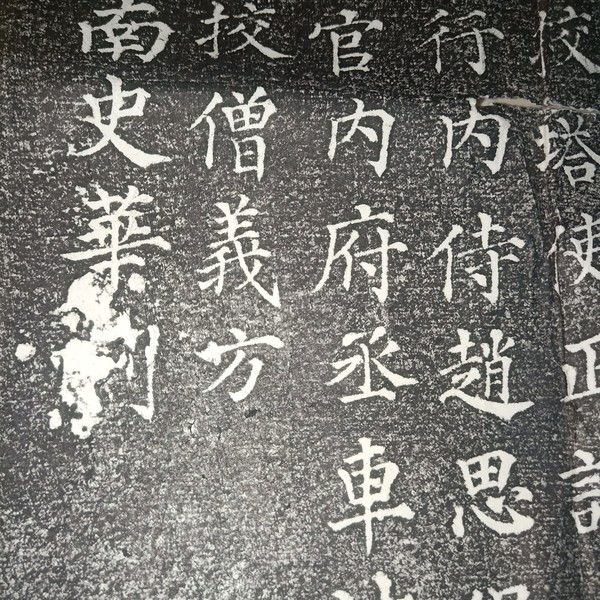 挍塔使正
行內侍趙思
官內府丞車
挍僧義方
南史華